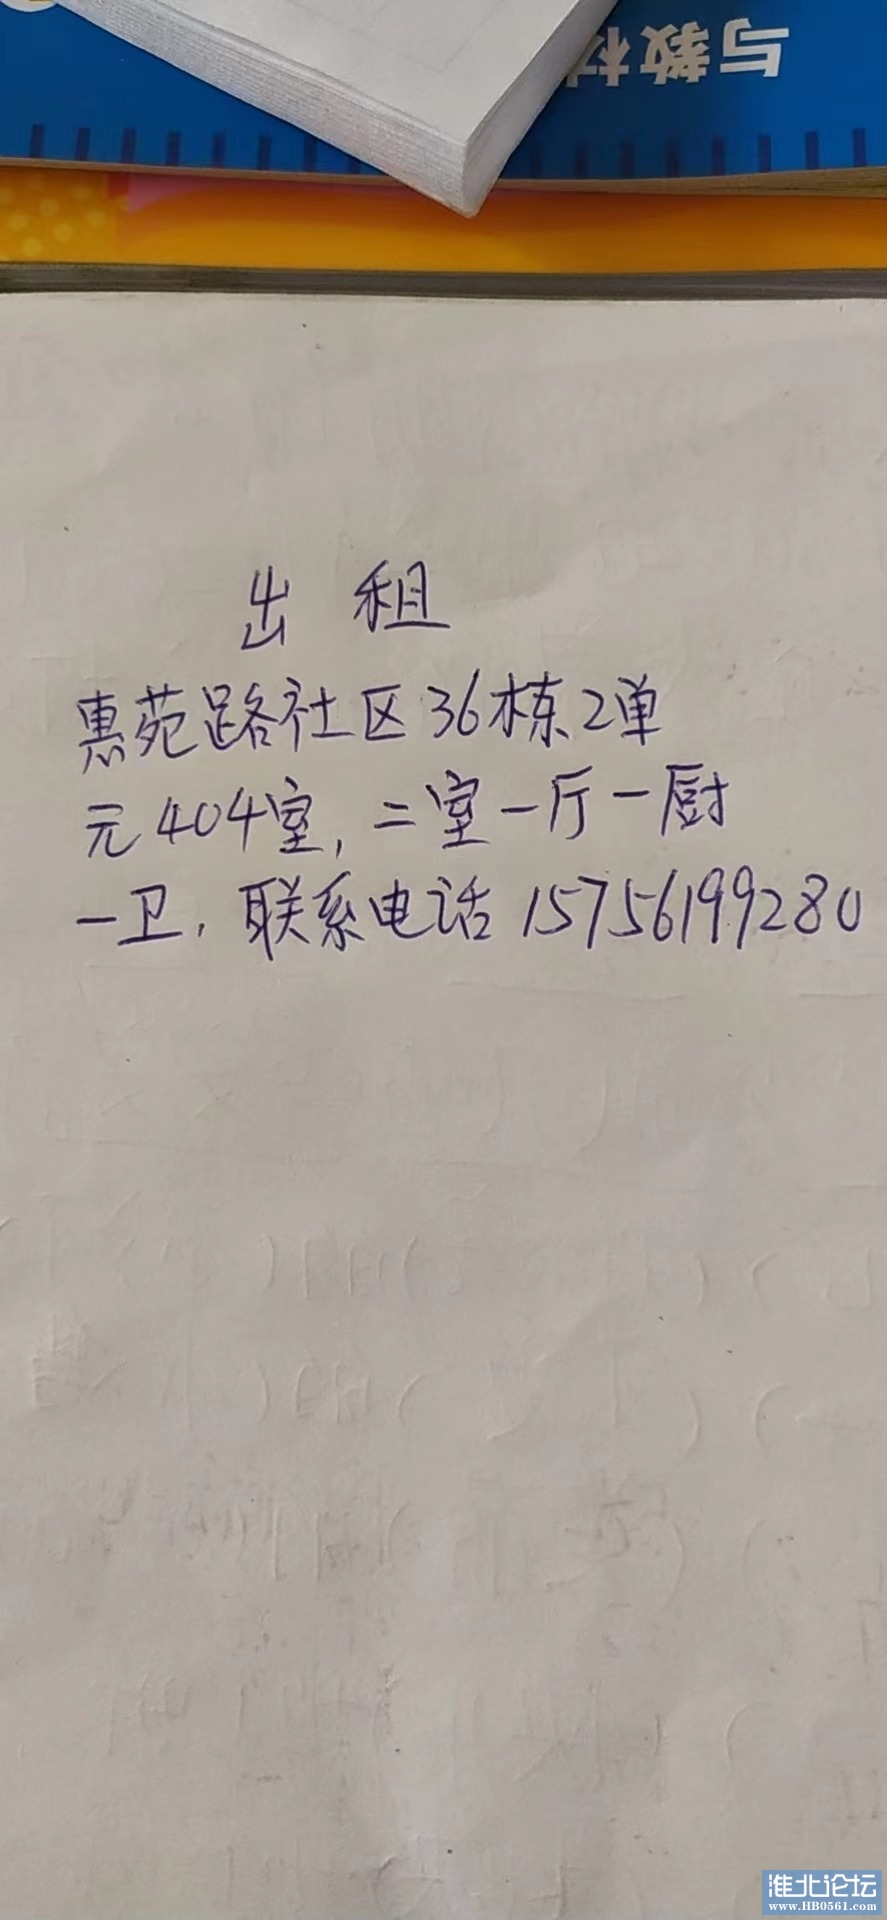 与教材
出租
惠苑路社区36栋2单
元404室,二室一厅一厨
一卫,联系电话15756199280
淮北论坛
www.HB0561.com